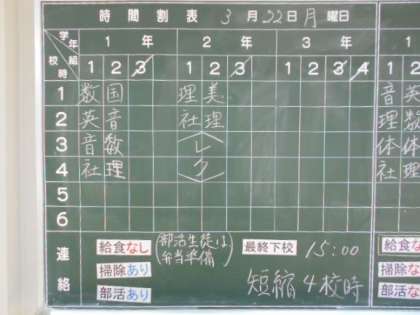 時間割表 3月22日月曜日
学年 組 校時
1年 2年 3年
1 2 3 1 2 3 1 2 3 4
1 数 国 理 美 音 英
2 英 音 社 理 理 数
3 音 数 〈レ 体 体
4 社 理 ク〉 社 理
5
6
連絡
給食なし (部活生徒は弁当準備) 最終下校 15:00 給食な
掃除あり 掃除な
部活あり 短縮4校時 部活な